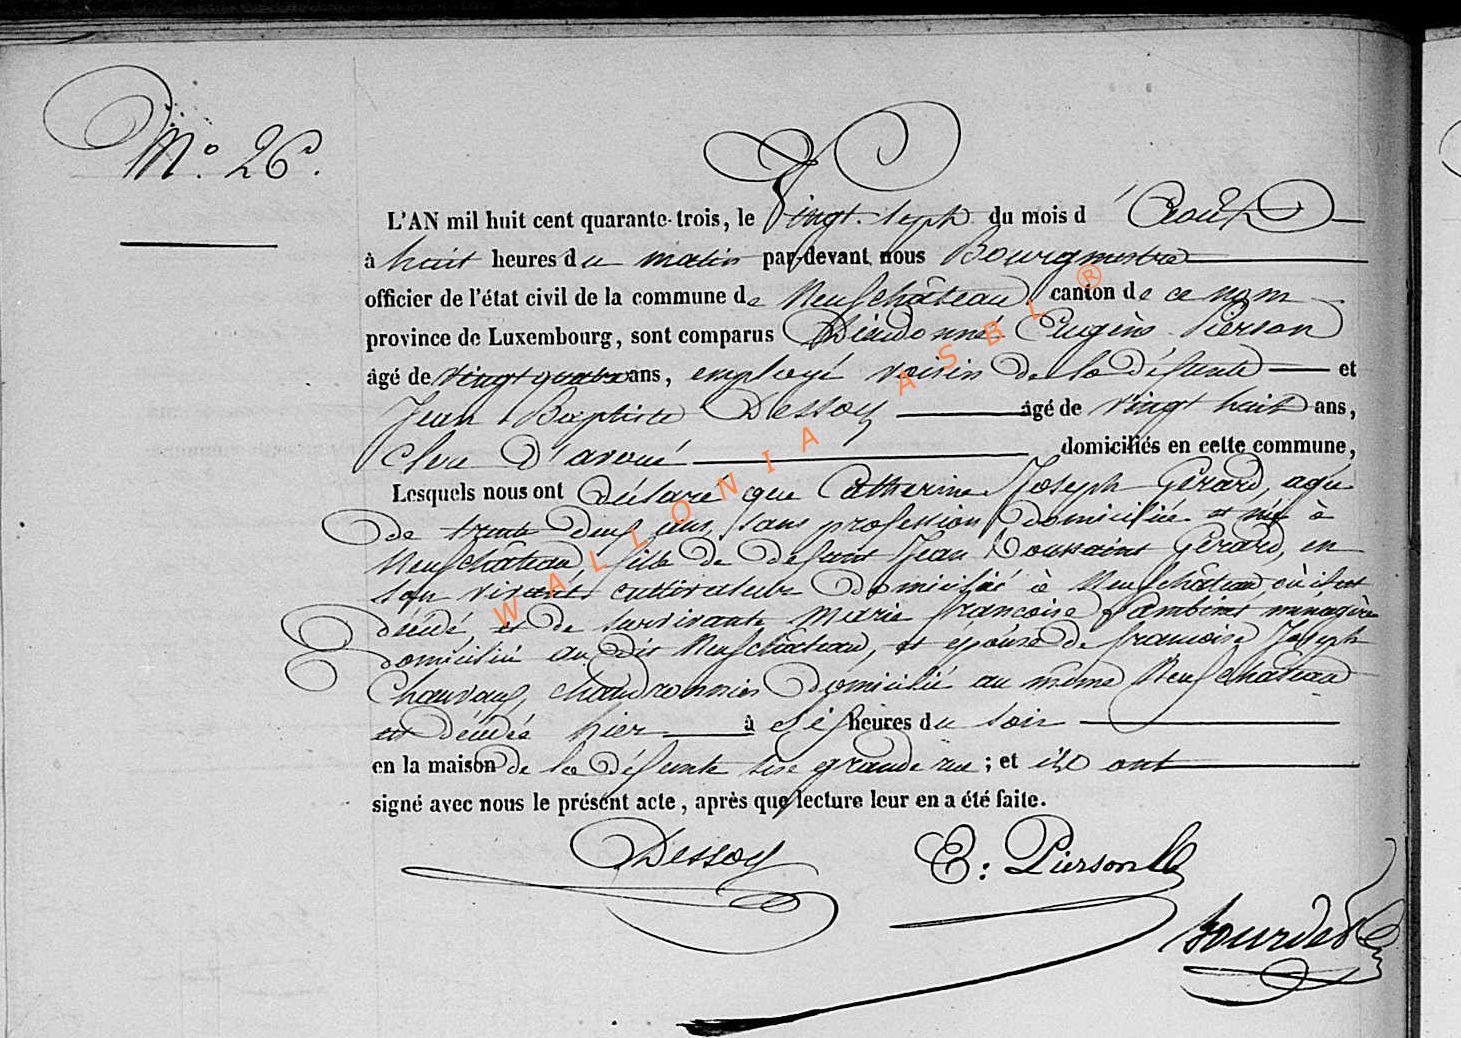 N° 26.
L'AN mil huit cent quarante-trois, le Vingt-sept du mois d'Août
à huit heures du matin par-devant nous Bourgmestre
officier de l'état civil de la commune de Neufchâteau canton de ce nom
province de Luxembourg, sont comparus Dieudonné Eugène Pierson
âgé de vingt quatre ans, employé voisin de la défunte et
Jean Baptiste Dessoy âgé de vingt huit ans,
clerc d'avoué domiciliés en cette commune,
Lesquels nous ont déclaré que Catherine Joseph Gérard, agée
de trente deux ans, sans profession domiciliée et née à
Neufchâteau, fille de défunt Jean Toussaint Gérard, en
son vivant cultivateur domicilié à Neufchâteau où il est
décédé, et de survivante Marie françoise ménagère
domiciliée au dit Neufchâteau, et épouse de françois Joseph
chaudronnier domicilié au même Neufchâteau
est décédée hier à heures du soir
en la maison de la défunte sise grande rue ; et ils ont
signé avec nous le présent acte, après que lecture leur en a été faite.
Dessoy E: Pierson
WALLONIA ASBL ®